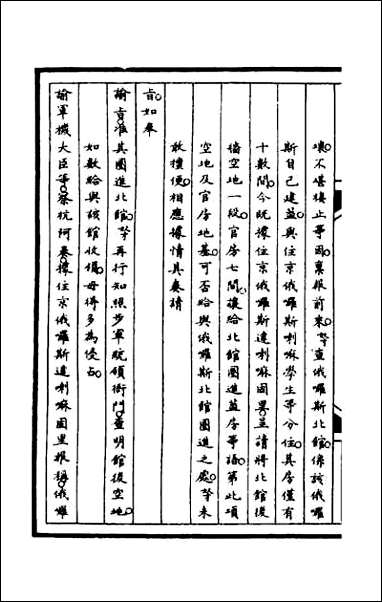 壞不堪棲止等因稟報前來等查俄囉斯北館係該俄囉
斯自己建蓋與住京俄囉斯喇嘛學生等分住其房僅有
十數間今既據住京俄囉斯達喇嘛固畢並請將北館後
牆空地一段官房七間懷給北館圈進蓋房等語第此項
空地及官房地基可否給與俄囉斯北館圈進之處等未
敢擅便相應據情具奏請
旨如奉
諭旨准其圈進北館等再行知照步軍統領衙門查明館後空地
如數給與該館收領毋得多為侵占
諭軍機大臣等祭杭阿奏據住京俄囉斯達喇嘛固里報稱俄囉